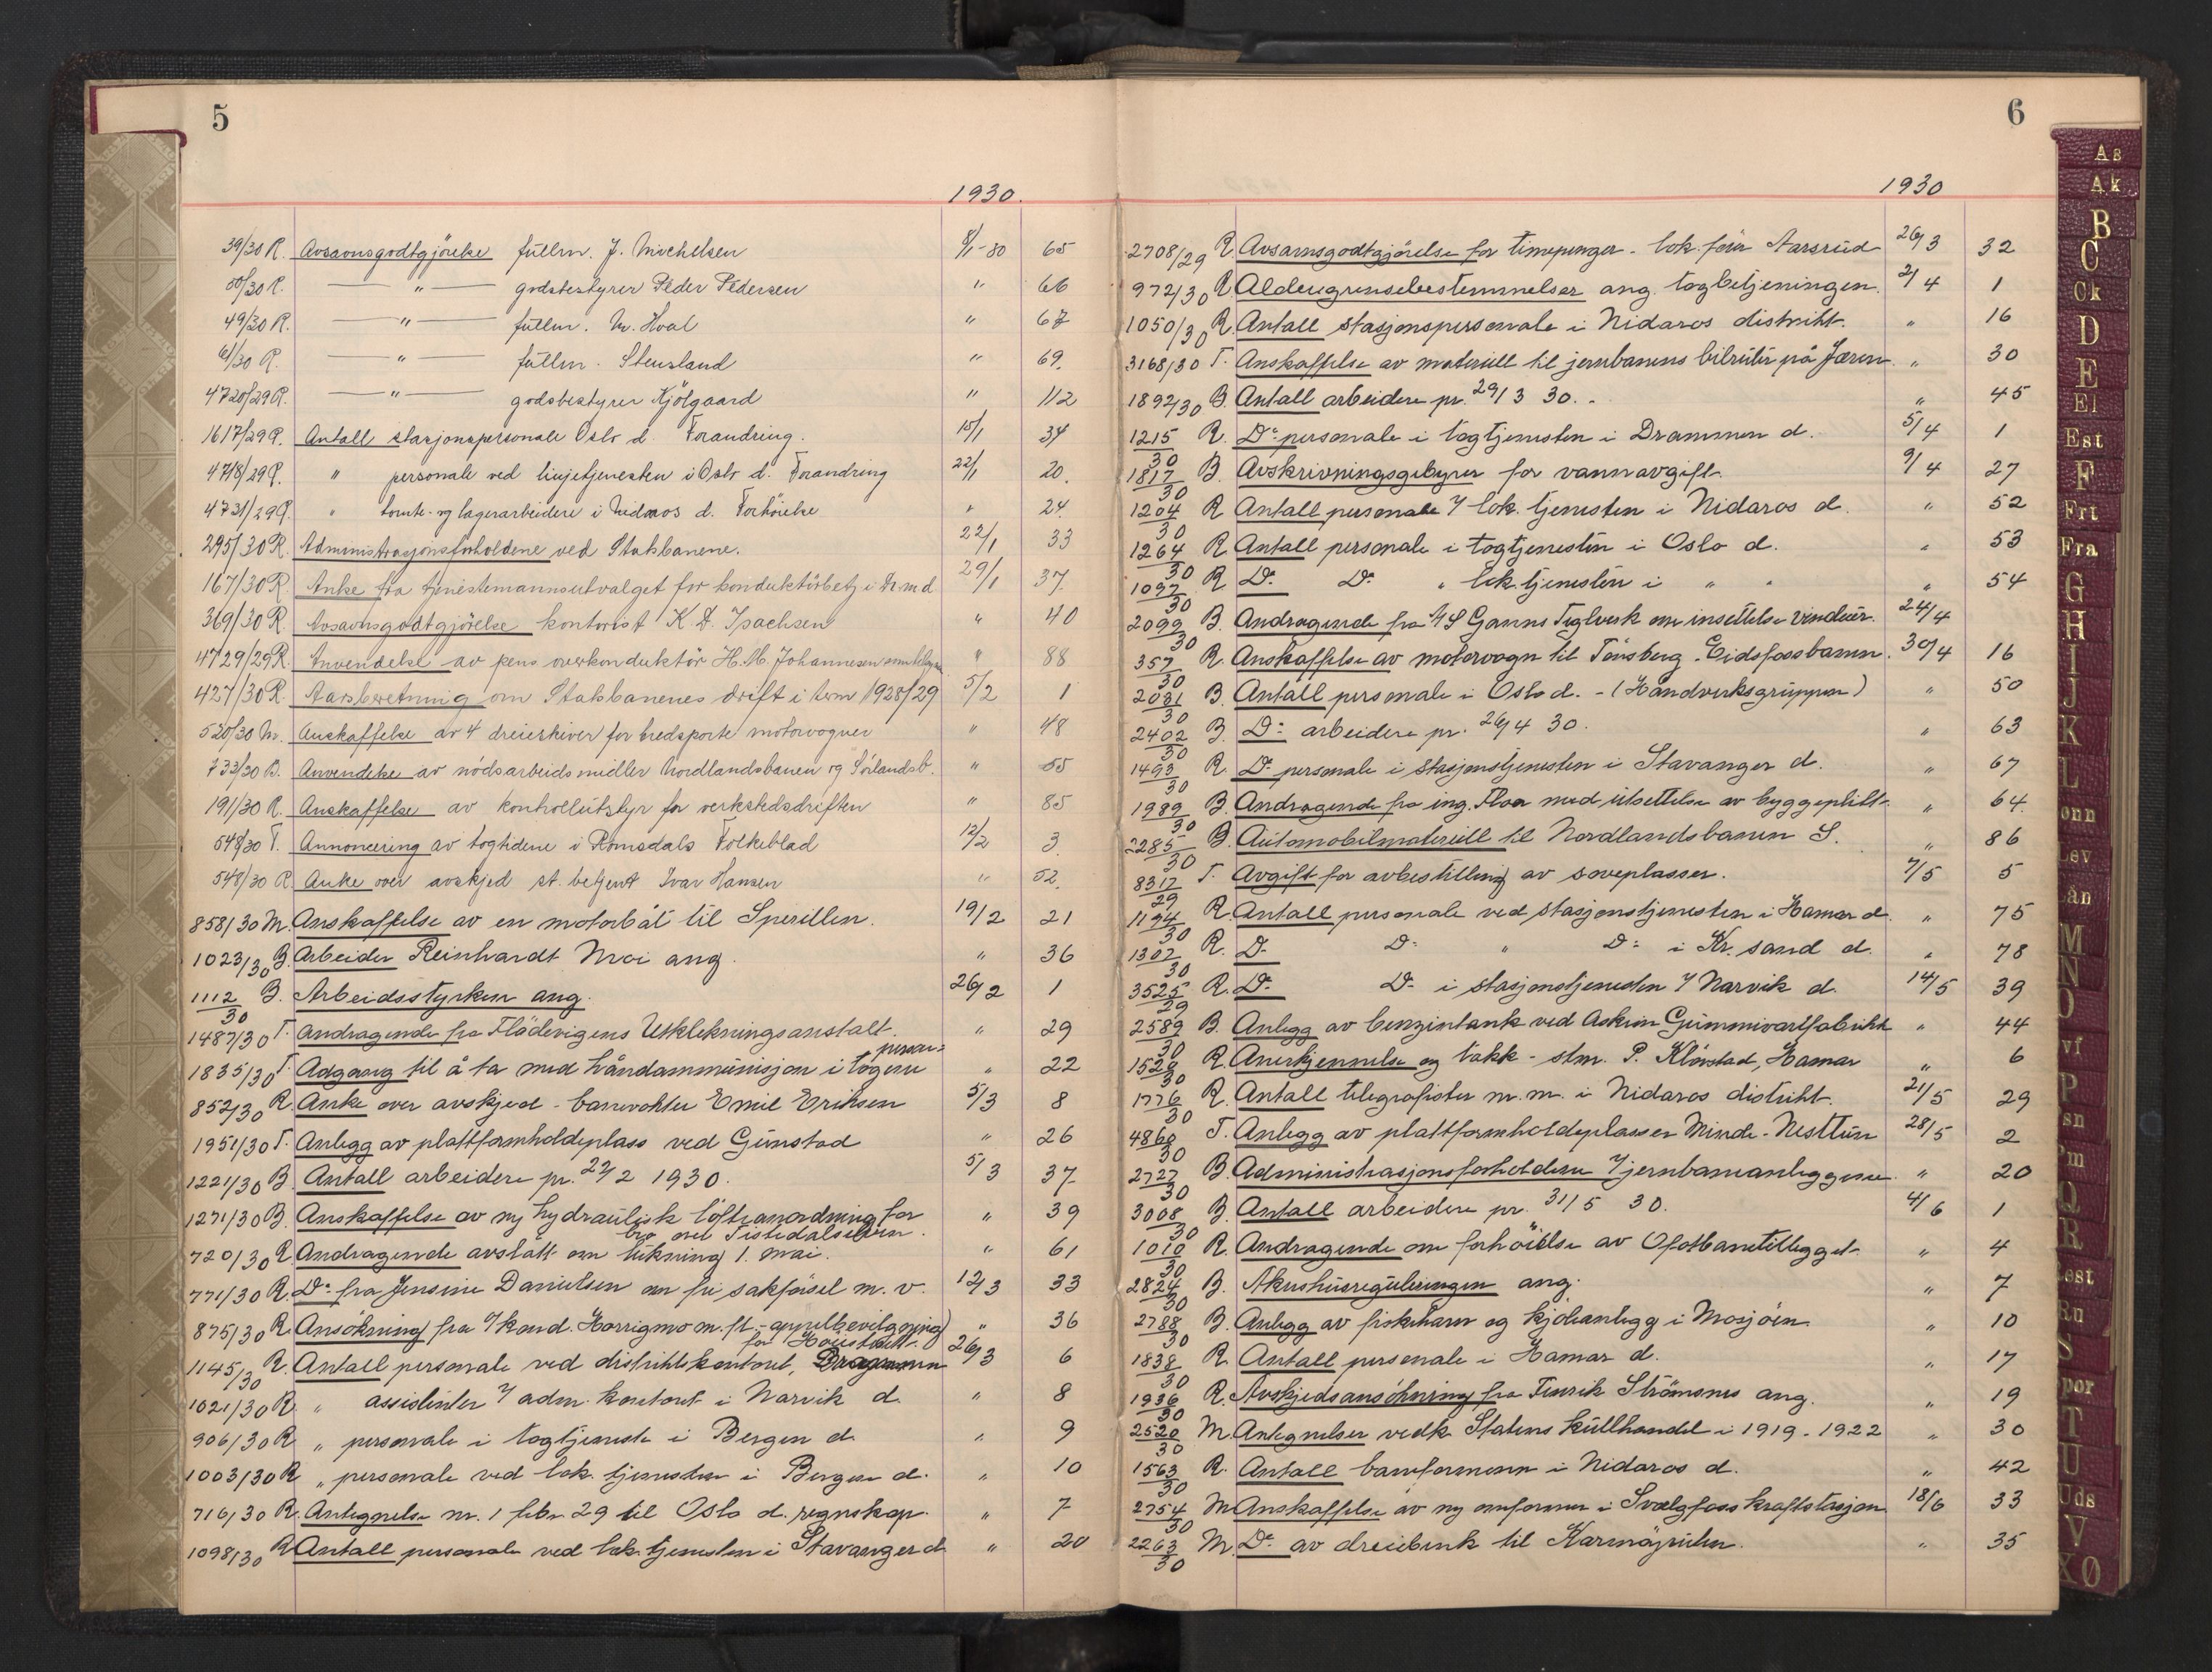 5
1930.
39/30 R. Avsavnsgodtgjörelse fullm. J. Michelsen 8/1-30 65
50/30 R. — " — godsbestyrer Peder Pedersen " 66
49/30 R. — " — fullm. M. Hval " 67
61/30 R. — " — fullm. Stensland " 69.
4720/29 R. — " — godsbestyrer Kjölgaard " 112
1617/29 R. Antall stasjonspersonale Oslo d. Forandring. 15/1 34
4718/29 R. " personale ved linjetjenesten i Oslo d. Forandring 22/1 20.
4731/29 R. " tomte- og lagerarbeidere i Nidaros d. Forhöielse " 24.
295/30 R. Administrasjonsforholdene ved Statsbanene. 22/1 33
167/30 R. Anke fra tjenestemannsutvalget for konduktörbetj. i Dr.m.d. 29/1 37
369/30 R. Avsavnsgodtgjörelse kontorist K. D. Isachsen " 40
4729/29 R. Anvendelse av pens. overkonduktör H. M. Johannesen " 88
427/30 R. Aarsberetning om Statsbanenes drift i term 1928/29 5/2 1
520/30 M. Anskaffelse av 4 dreieskiver for bredsporte motorvogner " 48
733/30 B. Anvendelse av nödsarbeidsmidler Nordlandsbanen og Sörlandsb. " 55
191/30 R. Anskaffelse av kontrollutstyr for verkstedsdriften " 85
548/30 T. Annoncering av togtidene i Romsdals Folkeblad 12/2 3.
548/30 R. Anke over avskjed st. betjent Ivar Hansen " 52.
858/30 M. Anskaffelse av en motorbåt til Sperillen. 19/2 21
1023/30 B. Arbeider Reinhardt Moi ang. " 36
1112/30 B. Arbeidsstyrken ang. 26/2 1
1487/30 T. Andragende fra Flödevigens Utklekningsanstalt. " 29
1835/30 T. Adgang til å ta med håndammunisjon i togene " 22
852/30 R. Anke over avskjed - banevokter Emil Eriksen 5/3 8
1951/30 T. Anlegg av plattformholdeplass ved Gimstad " 26
1221/30 B. Antall arbeidere pr. 22/2 1930. 5/3 37
1271/30 B. Anskaffelse av ny hydraulisk löfteanordning for " 39
bro over Tistedalselven.
720/30 R. Andragende avslått om lukning 1. mai. " 61
771/30 R. Do fra Jensine Danielsen om fri sakförsel m. v. 12/3 33
875/30 R. Ansökning fra / kond. Horrigmo m. fl. - appellbevilgning " 36
for Höiesterett.
1145/30 R. Antall personale ved distriktskontoret, Drammen 26/3 6
1021/30 R. " assistenter / adm. kontoret i Narvik d. " 8
906/30 R. " personale i togtjeneste i Bergen d. " 9
1003/30 R. " personale ved lok. tjenesten i Bergen d. " 10
716/30 R. Antegnelse nr. 1 febr. 29 til Oslo d. regnskap. " 7
1098/30 R. Antall personale ved lok. tjenesten i Stavanger d. " 20
6
1930
2708/29 R. Avsavnsgodtgjörelse for timepenger - lok. förer Aarsrud 26/3 32
972/30 R. Aldersgrensebestemmelser ang. togbetjeningen. 2/4 1
1050/30 R. Antall stasjonspersonale i Nidaros distrikt. " 16
3168/30 T. Anskaffelse av materiell til jernbanens bilruter på Jæren. " 30
1892/30 B. Antall arbeidere pr. 29/3 30. " 45
1215/30 R. Do personale i togtjenesten i Drammen d. 5/4 1
1817/30 B. Avskrivningsgebyrer for vannavgift. 9/4 27
1204/30 R. Antall personale / lok. tjenesten i Nidaros d. " 52
1264/30 R. Antall personale i togtjenesten i Oslo d. " 53
1097/30 R. Do Do " lok. tjenesten i " " " 54
2099/30 B. Andragende fra A/S Ganns Teglverk om insettelse vinduer. 24/4
357/30 R. Anskaffelse av motorvogn til Tönsberg - Eidsfossbanen. 30/4 16
2031/30 B. Antall personale i Oslo d. - (Håndverksgruppen) " 50
2402/30 B. Do arbeidere pr. 26/4 30. " 63
1493/30 R. Do personale i stasjonstjenesten i Stavanger d. " 67
1989/30 B. Andragende fra ing. Floa med utsettelse av byggeplikt. " 64.
2285/30 B. Automobilmateriell til Nordlandsbanen S. " 86
8317/29 T. Avgift for avbestilling av soveplasser. 7/5 5
1194/30 R. Antall personale ved stasjonstjenesten i Hamar d. " 75
1307/30 R. Do Do " Do i Kr. sand d. " 78
3525/29 R. Do Do i stasjonstjenesten / Narvik d. 14/5 39
2589/30 B. Anlegg av benzintank ved Askim Gummivarefabrikk " 44
1520/30 R. Anerkjennelse og takk - stm. P. Klövstad, Hamar " 6
1776/30 R. Antall telegrafister m. m. i Nidaros distrikt. 21/5 29
4860/30 T. Anlegg av plattformholdeplasser Minde - Nesttun 28/5 2
2727/30 B. Administrasjonsforholdene / jernbaneanleggene " 20
3008/30 B. Antall arbeidere pr. 31/5 30. 4/6 1
1010/30 R. Andragende om forhöielse av Ofotbanetillegget. " 4
2824/30 B. Akershusreguleringen ang. " 7
2788/30 B. Anlegg av fiskehavn og kjöleanlegg i Mosjöen " 10
1838/30 R. Antall personale i Hamar d. " 17
1936/30 R. Avskjedsansökning fra Fenrik Strömsnes ang. " 19
2520/30 M. Antegnelser vedk. Statens kullhandel i 1919 - 1922 " 30
1563/30 R. Antall baneformenn i Nidaros d. " 42
2754/30 M. Anskaffelse av ny omformer i Svælgfoss kraftstasjon 18/6 33
2263/30 M. Do av dreiebenk til Karmöyruten. " 35
As
Ak
B
C
Ck
D
E
El
Est
F
Frt
Fra
G
H
I
J
K
L
onn
Lev
Lån
M
N
O
vf
P
sn
Pm
Q
R
Rest
Ru
S
por
T
U
Uds
V
XØ